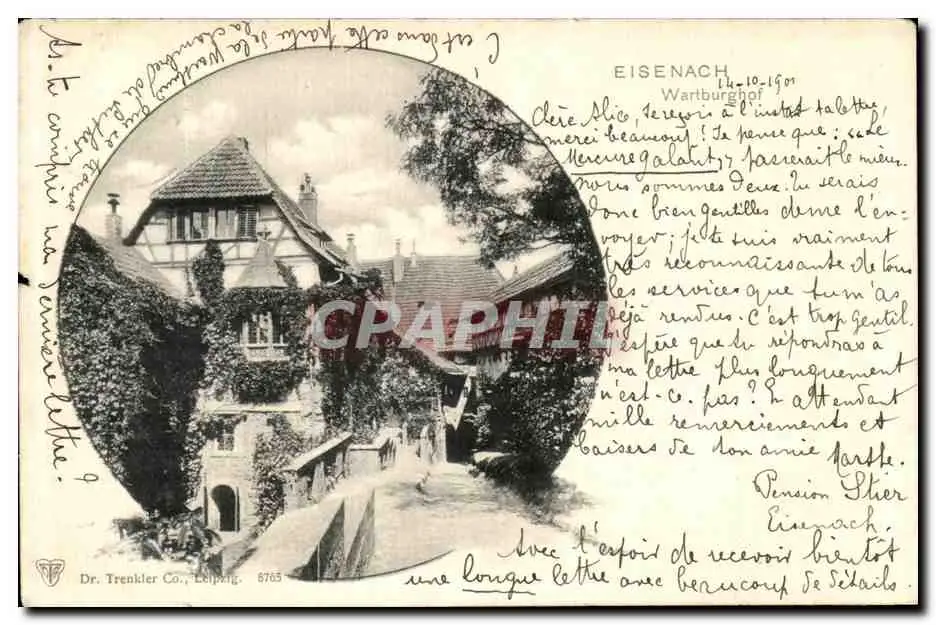 EISENACH
Wartburghof
14-10-1901
Chère Alice, Je reçois à l'instant ta lettre,
merci beaucoup! Je pense que : "Le
Mercure galant" passerait le mieux.
nous sommes deux. Tu serais
donc bien gentille de me l'en=
voyer; je te suis vraiment
très reconnaissante de tous
les services que tu m'as
déjà rendus. C'est trop gentil.
J'espère que tu répondras à
ma lettre plus longuement
n'est-ce-pas? En attendant
mille remerciements et
baisers de ton amie Marthe.
Pension Stier
Eisenach.
Avec l'espoir de recevoir bientôt
une longue lettre avec beaucoup de détails.
C'est dans cette partie de la Wartburg
la chambre de Luther
As-tu compris ma dernière lettre?
CPAPHIL
Dr. Trenkler Co., Leipzig. 8765